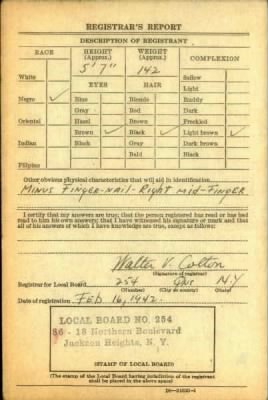 REGISTRAR'S REPORT
DESCRIPTION OF REGISTRANT
RACE HEIGHT (Approx.) WEIGHT (Approx.) COMPLEXION
5' 7" 142
White EYES HAIR Sallow
Light
Negro ✓ Blue Blonde Ruddy
Gray Red Dark
Oriental Hazel Brown Freckled
Brown ✓ Black ✓ Light brown ✓
Indian Black Gray Dark brown
Bald Black
Filipino
Other obvious physical characteristics that will aid in identification
MINUS FINGER-NAIL-RIGHT MID-FINGER
I certify that my answers are true; that the person registered has read or has had
read to him his own answers; that I have witnessed his signature or mark and that
all of his answers of which I have knowledge are true, except as follows:
Walter V. Colton
(Signature of registrar)
Registrar for Local Board 254 N.Y.
(Number) (City or county) (State)
Date of registration FEB 16, 1942
LOCAL BOARD NO. 254
86 - 18 Northern Boulevard
Jackson Heights, N. Y.
(STAMP OF LOCAL BOARD)
(The stamp of the Local Board having jurisdiction of the registrant
shall be placed in the above space)